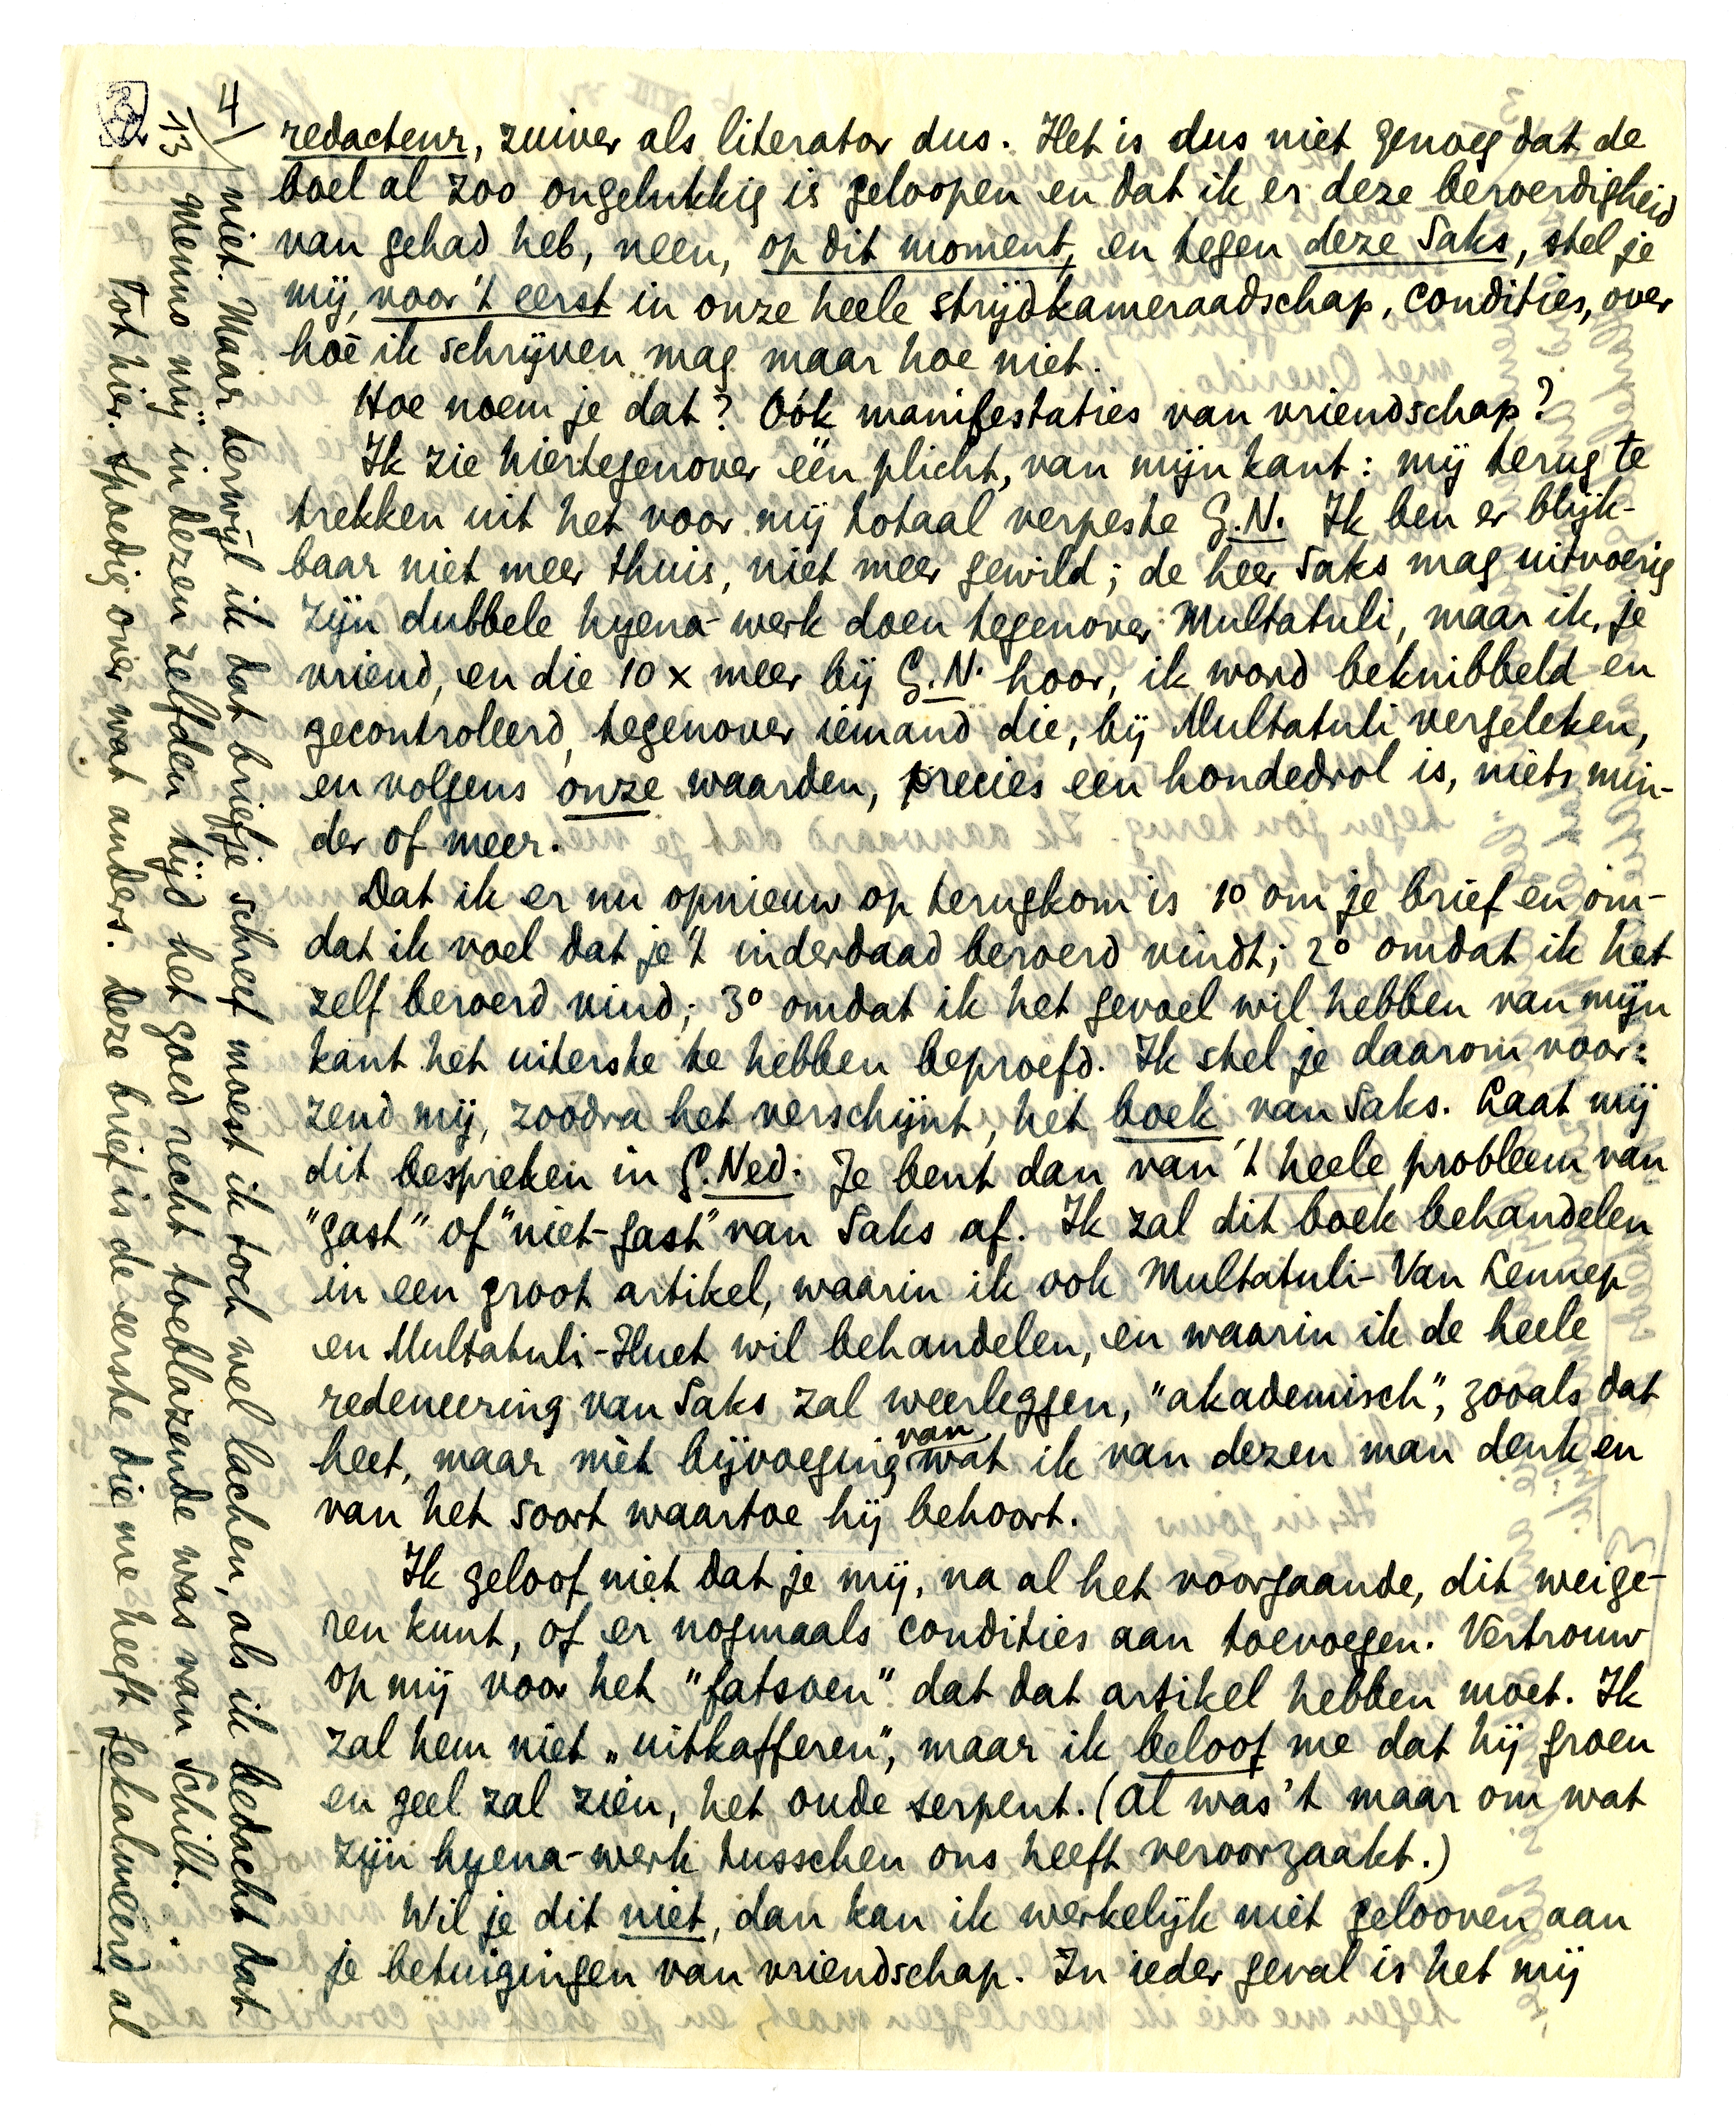 4/
redacteur, zuiver als literator dus. Het is dus niet genoeg dat de
boel al zoo ongelukkig is geloopen en dat ik er deze beroerdigheid
van gehad heb, neen, op dit moment, en tegen deze Saks, stel je
mij, voor 't eerst in onze heele strijdkameraadschap, condities, over
hoè ik schrijven mag maar hoe niet.
Hoe noem je dat? Oók manifestaties van vriendschap?
Ik zie hiertegenover één plicht, van mijn kant: mij terug te
trekken uit het voor mij totaal verpeste G.N. Ik ben er blijk-
baar niet meer thuis, niet meer gewild; de heer Saks mag uitvoerig
zijn dubbele hyena-werk doen tegenover Multatuli, maar ik, je
vriend, en die 10 x meer bij G.N. hoor, ik word beknibbeld en
gecontroleerd, tegenover iemand die, bij Multatuli vergeleken,
en volgens onze waarden, precies een hondedrol is, niets min-
der of meer.
Dat ik er nu opnieuw op terugkom is 1º om je brief en om-
dat ik voel dat je 't inderdaad beroerd vindt; 2º omdat ik het
zelf beroerd vind; 3º omdat ik het gevoel wil hebben van mijn
kant het uiterste te hebben beproefd. Ik stel je daarom voor:
zend mij, zoodra het verschijnt, het boek van Saks. Laat mij
dit bespreken in G.Ned. Je bent dan van 't heele probleem van
"gast" of "niet-gast" van Saks af. Ik zal dit boek behandelen
in een groot artikel, waarin ik ook Multatuli-Van Lennep
en Multatuli-Huet wil behandelen, en waarin ik de heele
redeneering van Saks zal weerleggen, "akademisch", zooals dat
heet, maar mèt bijvoeging van wat ik van dezen man denk en
van het soort waartoe hij behoort.
Ik geloof niet dat je mij, na al het voorgaande, dit weige-
ren kunt, of er nogmaals condities aan toevoegen. Vertrouw
op mij voor het "fatsoen" dat dat artikel hebben moet. Ik
zal hem niet „uitkafferen", maar ik beloof me dat hij groen
en geel zal zien, het oude serpent. (Al was 't maar om wat
zijn hyena-werk tusschen ons heeft veroorzaakt.)
Wil je dit niet, dan kan ik werkelijk niet gelooven aan
je betuigingen van vriendschap. In ieder geval is het mij
niet. Maar terwijl ik dat briefje schreef moest ik toch wel lachen, als ik bedacht dat
13/
Menno mij in dezen zelfden tijd het goed recht toeblazende was van Schilt.
Tot hier. Spoedig over wat anders. Deze brief is de eerste die me heeft gekalmeerd al